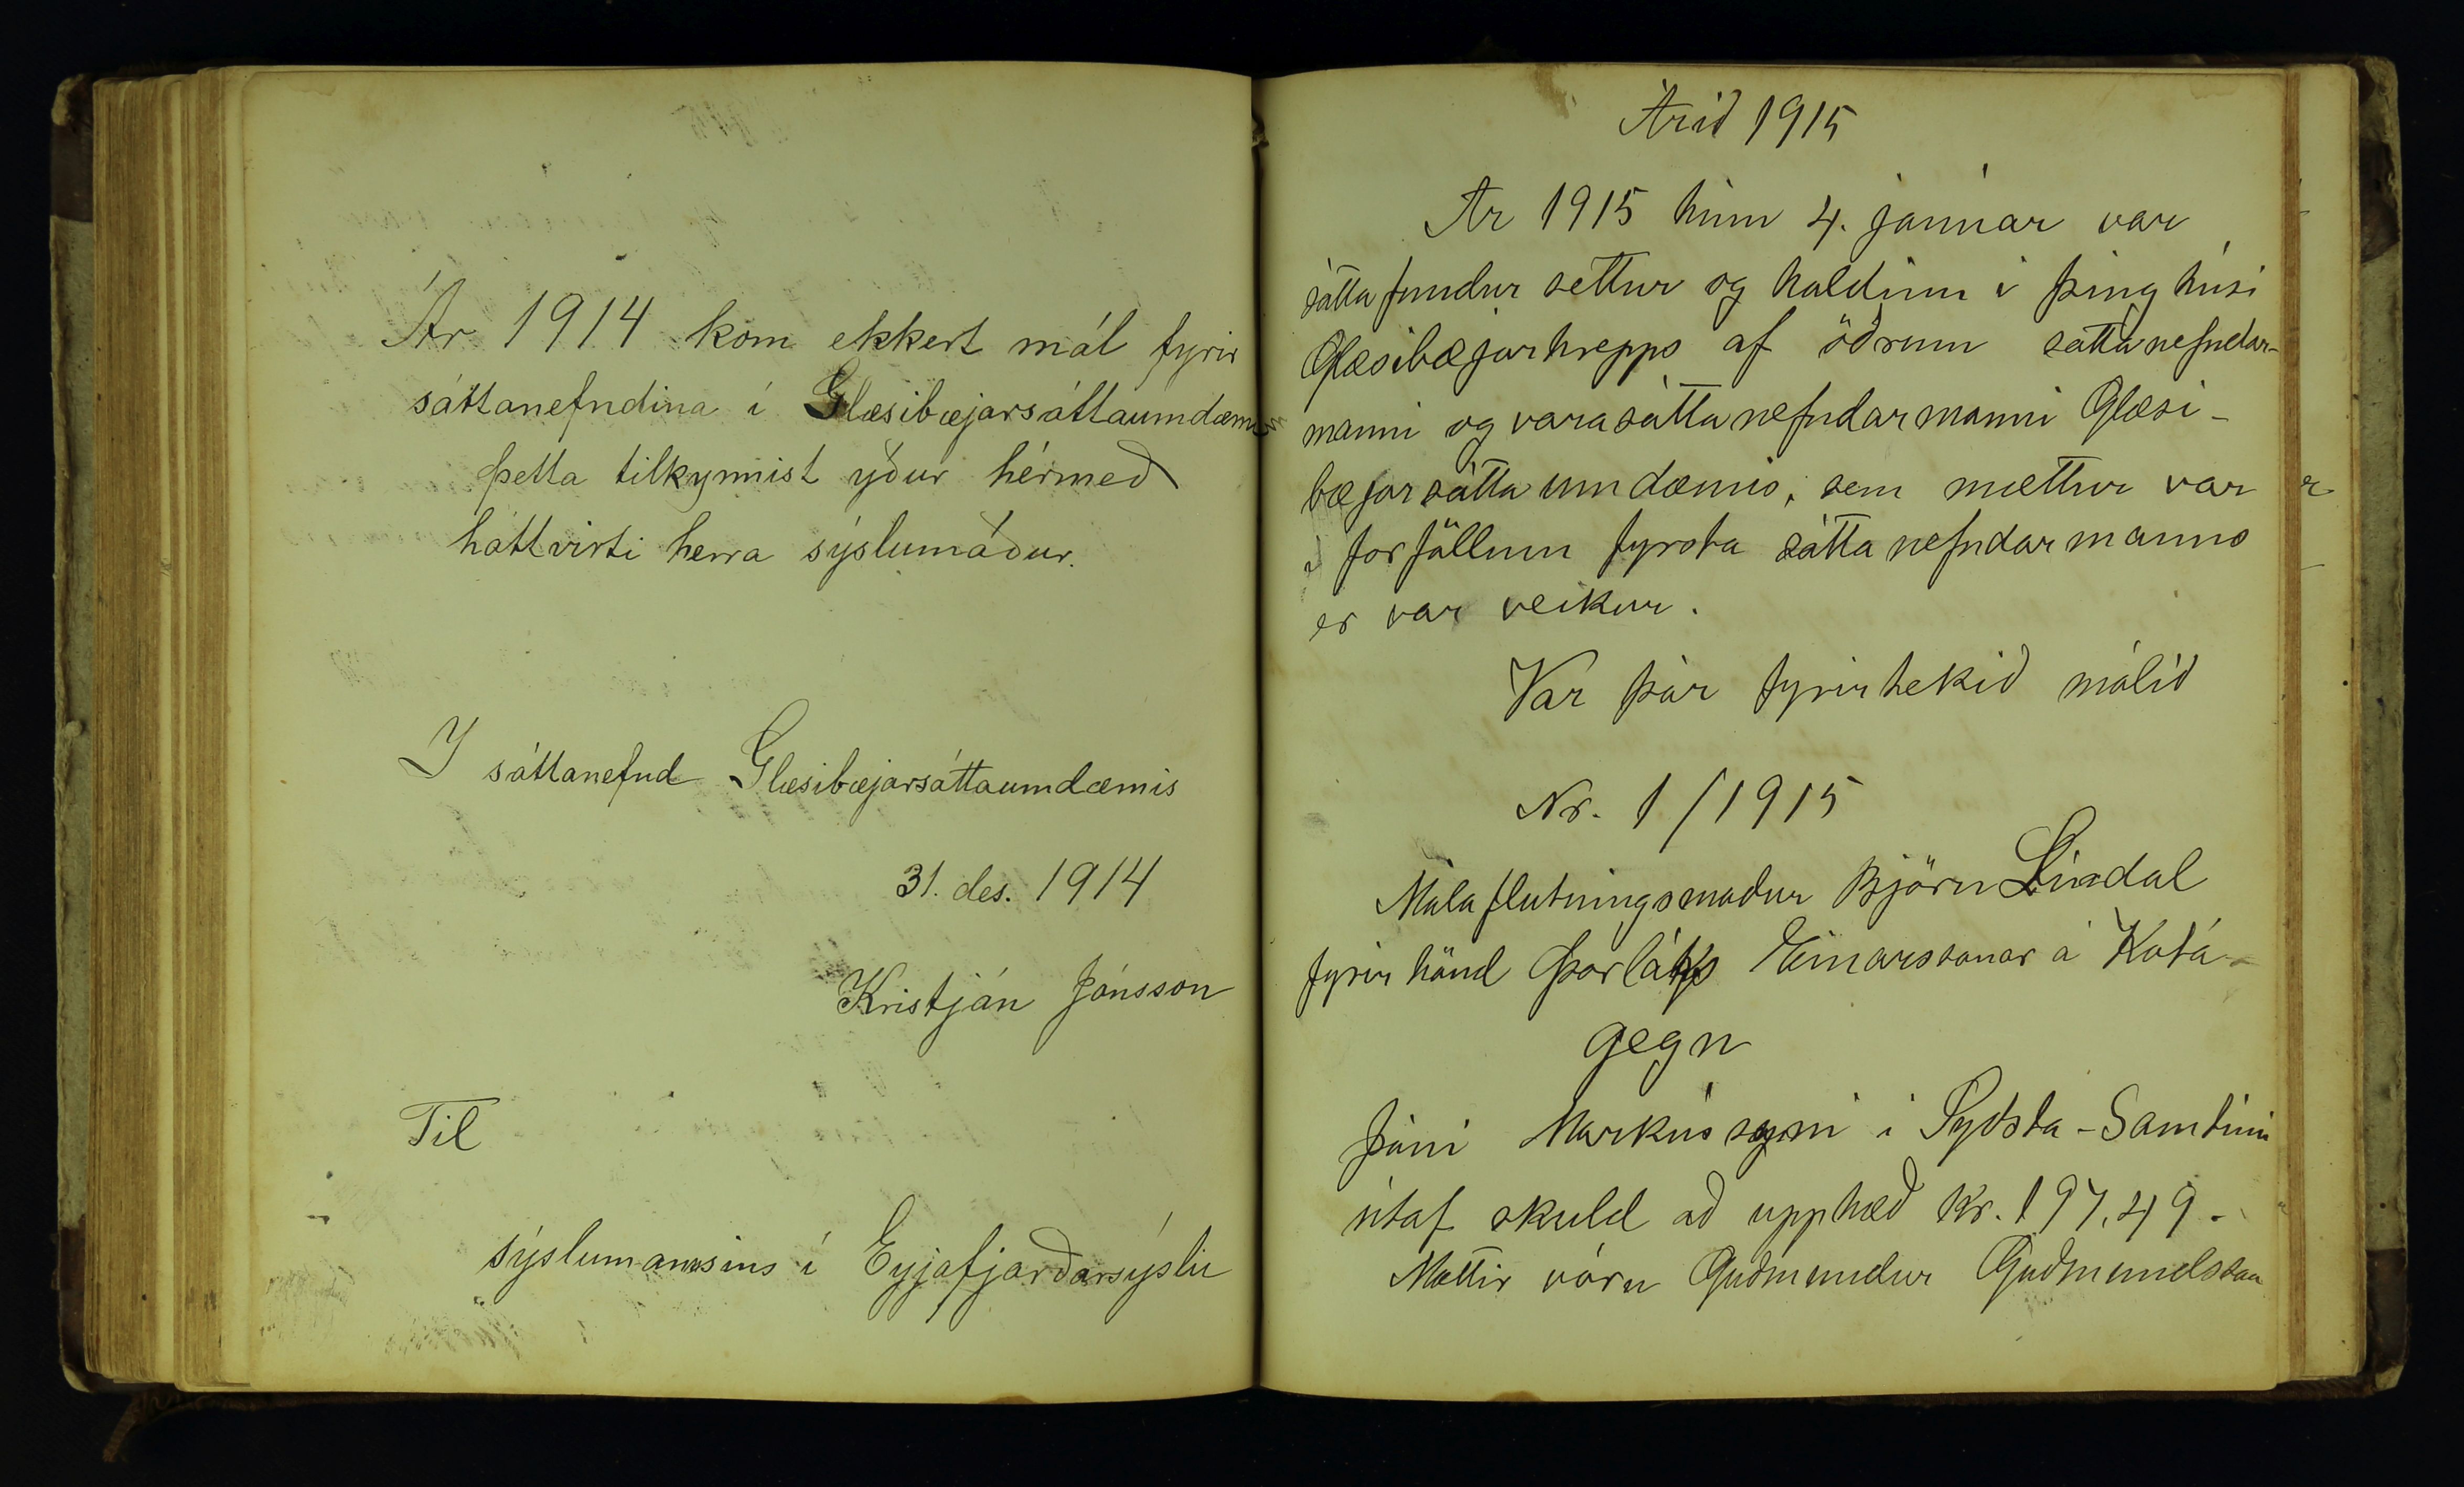 Ár 1914 kom ekkert mál fyrir
sáttanefndina í Glæsibæjarsáttaumdæmi
Þetta tilkynnist yður hérmeð
háttvirti herra sýslumaður.
Í sáttanefnd Glæsibæjarsáttaumdæmis
31. des. 1914
Kristján Jónsson
Til
sýslumannsins í Eyjafjarðarsýslu
Árið 1915
Ár 1915 hinn 4. janúar var
sáttafundur settur og haldinn í þinghúsi
Glæsibæjarhrepps af öðrum sáttanefndar-
manni og varasáttanefndarmanni Glæsi-
bæjarsáttaumdæmis, sem mættur var
í forföllum fyrsta sáttanefndarmanns
er var veikur.
Var þar fyrirtekið málið
Nr. 1/1915
Málaflutningsmaður Björn Líndal
fyrir hönd Þorláks Einarssonar á Kotá
gegn
Jóni Markússyni í Syðsta-Samtúni
útaf skuld að upphæð kr. 197,49.
Mættir vóru Guðmundur Guðmundsson